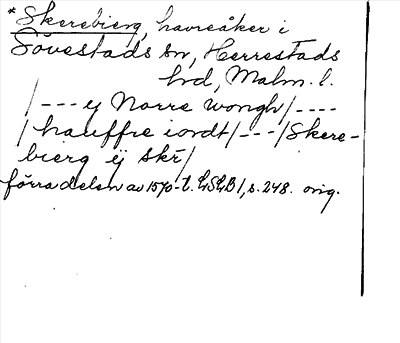 *Skerebierg, havreåker i
Sövestads sn, Herrestads
hrd, Malm. l.
/--- ij Norre wongh/----
/hauffre iordt/---/Skere-
bierg ij skr/
förra delen av 1570-t. LSGB 1, s. 248. orig.